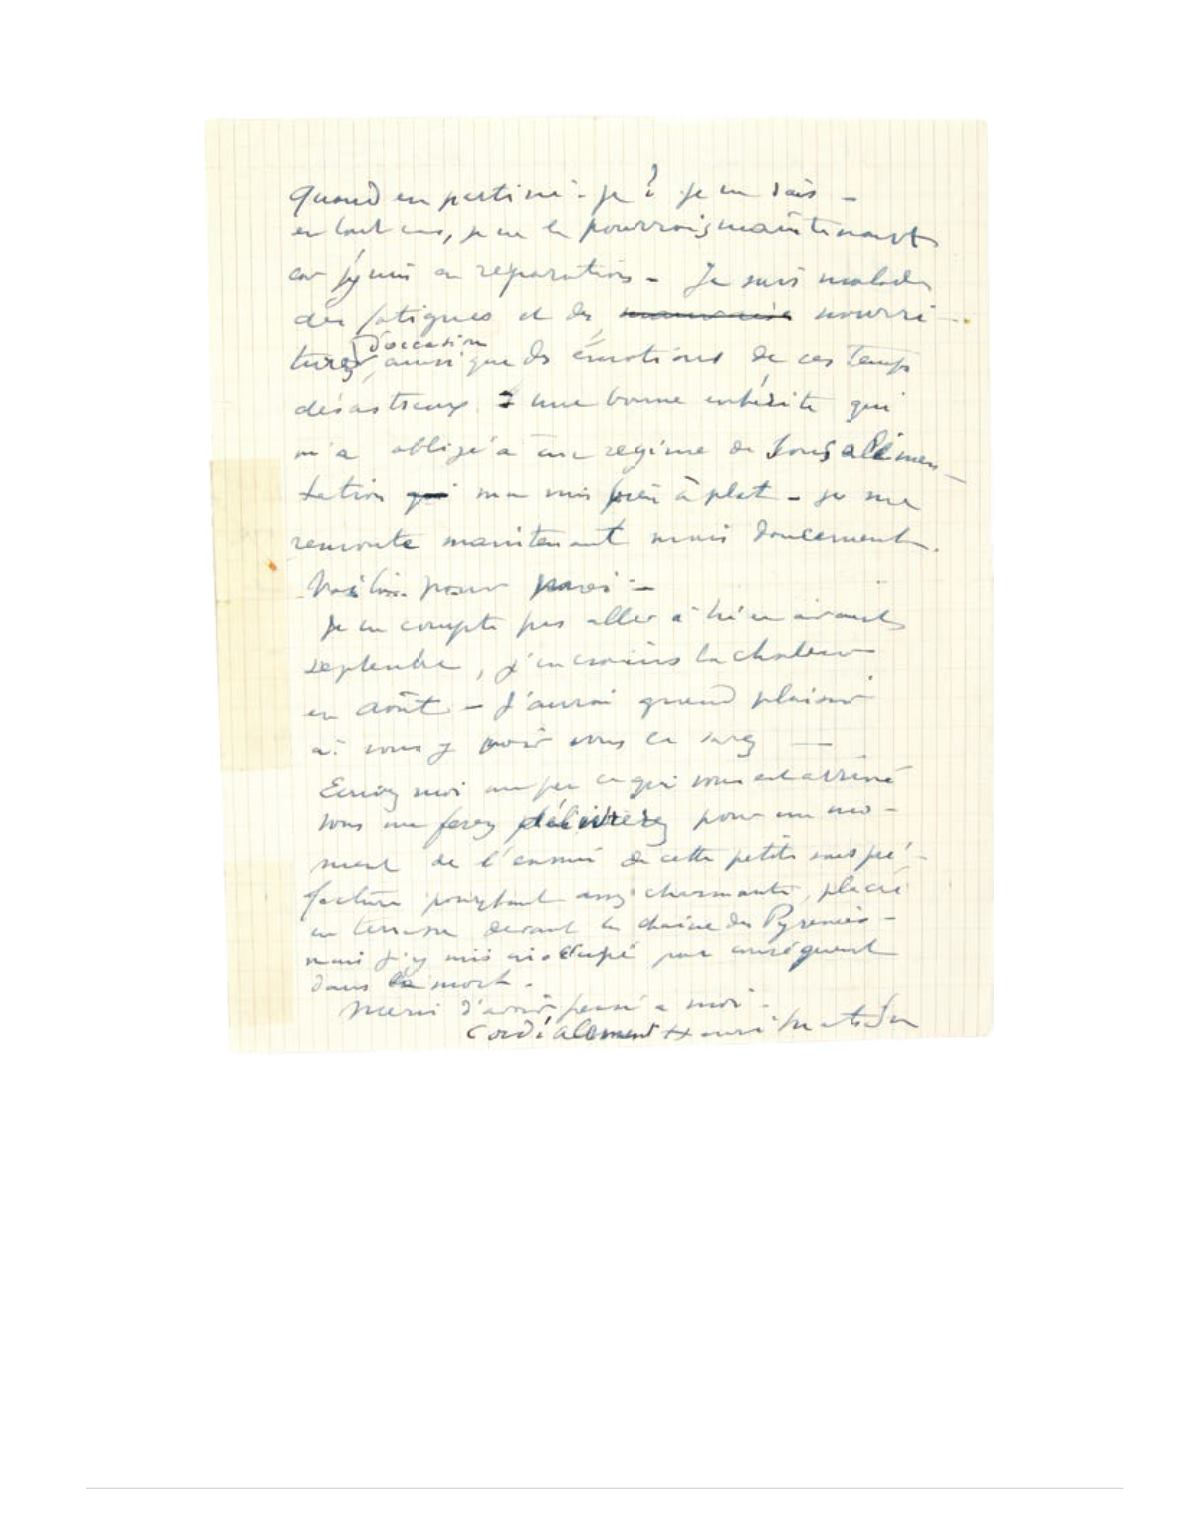 Quand en partirai-je? je ne sais –
en tout cas, je ne le pourrais maintenant
car j'y suis en réparation – Je suis malade
des fatigues et des mauvaise nourri-
tures d'occasion, ainsi que des émotions de ces temps
désastreux : une bonne entérite qui
m'a obligé à un régime de sous alimen-
tation qui m'a mis bien à plat – je me
remonte maintenant mais doucement.
Voilà pour moi –
Je ne compte pas aller à Nice avant
septembre, j'en crains la chaleur
en Août – J'aurai grand plaisir
à vous y voir vous le savez –
Ecrivez moi un peu ce qui vous est arrivé
vous me ferez pour un mo-
ment de l'ennui de cette petite sous pré-
fecture pourtant assez charmante, placée
en terrasse devant la chaîne des Pyrénées –
mais j'y suis inoccupé par conséquent
dans la mort.
Merci d'avoir pensé à moi –
Cordialement Henri Matisse